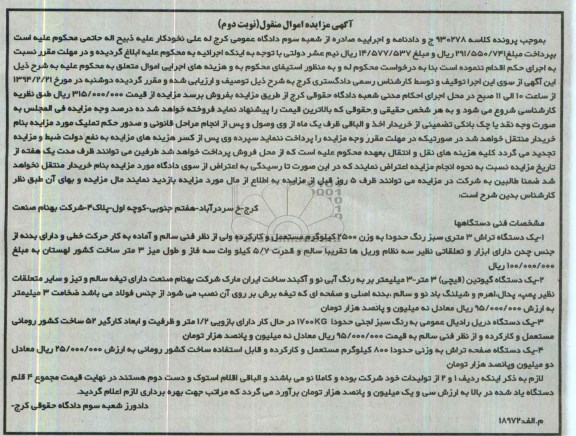 آگهی مزایده اموال منقول(نوبت دوم)
بموجب پرونده کلاسه ۹۳۰۲۷۸ ج و دادنامه و اجراییه صادره از شعبه سوم دادگاه عمومی کرج له علی نخودکار علیه ذبیح اله حاتمی محکوم علیه است
بپرداخت مبلغ۲۹۱/۵۵۰/۷۴۱ ریال و مبلغ ۱۴/۵۷۷/۵۳۷ ریال نیم عشر دولتی با توجه به اینکه اجرائیه به محکوم علیه ابلاغ گردیده و در مهلت مقرر نسبت
به اجرای حکم اقدام ننموده است بنا به درخواست محکوم له و به منظور استیفای محکوم به و هزینه های اجرایی اموال متعلق به محکوم علیه به شرح ذیل
این آگهی از سوی این اجرا توقیف و توسط کارشناس رسمی دادگستری کرج به شرح ذیل توصیف و ارزیابی شده و مقرر گردیده دوشنبه در مورخ ۱۳۹۴/۲/۲۱
از ساعت ۱۰ الی ۱۱ صبح در محل اجرای احکام مدنی شعبه دادگاه حقوقی کرج از طریق مزایده بفروش برسد مزایده از قیمت ۳۱۵/۰۰۰/۰۰۰ ریال طبق نظریه
کارشناسی شروع می شود و به هر شخص حقیقی و حقوقی که بالاترین قیمت را پیشنهاد نماید فروخته خواهد شد ده درصد وجه مزایده فی المجلس به
صورت وجه نقد یا چک بانکی تضمینی از خریدار اخذ و الباقی ظرف یک ماه از وی وصول و پس از انجام مراحل قانونی و صدور حکم تملیک مورد مزایده بنام
خریدار منتقل خواهد شد در صورتیکه در مهلت مقرر وجه مزایده را پرداخت ننماید سپرده وی پس از کسر هزینه های مزایده به نفع دولت ضبط و مزایده
تجدید می گردد کلیه هزینه های نقل و انتقال بعهده محکوم علیه است که از محل فروش پرداخت خواهد شد طرفین می توانند ظرف مدت یک هفته از
تاریخ مزایده نسبت به نحوه انجام مزایده اعتراض نمایند که در این صورت تا رسیدگی به اعتراض از سوی دادگاه مورد مزایده بنام خریدار منتقل نخواهد
شد ضمنا طالبین به شرکت در مزایده می توانند ظرف ۵ روز قبل از مزایده به اطلاع از مال مورد مزایده بازدید نمایند مال مزایده و بهای آن طبق نظر
کارشناس بدین شرح است:
کرج-خ سردرآباد-هفتم جنوبی-کوچه اول-پلاک۴-شرکت بهنام صنعت
مشخصات فنی دستگاهها
۱-یک دستگاه تراش ۳ متری سبز رنگ حدودا به وزن ۲۵۰۰ کیلوگرم مستعمل و کارکرده ولی از نظر فنی سالم و آماده به کار حرکت خطی و دارای بدنه از
جنس چدن دارای ابزار و تعلقاتی نظیر سه نظام وریل ها تقریبا سالم و قدرت ۵/۷ کیلو وات سه فاز و طول میز ۳ متر ساخت کشور لهستان به مبلغ
۱۰۰/۰۰۰/۰۰۰ ریال
۲-یک دستگاه گیوتین (قیچی) ۳ متر-۳ میلیمتر بر به رنگ آبی نو و آکبند ساخت ایران مارک شرکت بهنام صنعت دارای تیغه سالم و تیز و سایر متعلقات
نظیر پمپ پدال،اهرم و شیلنگ باد نو و سالم ،بدنه اصلی و صفحه ای که تیغه برش بر روی آن نصب می شود از جنس فولاد می باشد ضخامت ۳ میلیمتر
به ارزش ۹۵/۰۰۰/۰۰۰ ریال معادل نه میلیون و پانصد هزار تومان
۳-یک دستگاه دریل رادیال عمومی به رنگ سبز لجنی حدودا ۱۷۰۰KG در حال کار دارای بازویی ۱/۲ متر و ظرفیت و ابعاد کارگیر ۵۲ ساخت کشور رومانی
مستعمل و کارکرده و از نظر فنی سالم به قیمت ۹۵/۰۰۰/۰۰۰ ریال معادل نه میلیون و پانصد هزار تومان
۴-یک دستگاه صفحه تراش به وزنی حدودا ۸۰۰ کیلوگرم مستعمل و کارکرده و قابل استفاده ساخت کشور رومانی به ارزش ۲۵/۰۰۰/۰۰۰ ریال معادل
دو میلیون وپانصد هزار تومان
لازم به ذکر اینکه ردیف ۱ و ۲ از تولیدات خود شرکت بوده و کاملا نو می باشند و الباقی اقلام استوک و دست دوم هستند در نهایت قیمت مجموع ۴ قلم
دستگاه یاد شده در بالا به ارزش سی و یک میلیون و پانصد هزار تومان برآورد می گردد که مراتب جهت بهره برداری لازم اعلام گردید.
دادورز شعبه سوم دادگاه حقوقی کرج-
م.الف:۱۸۹۷۲